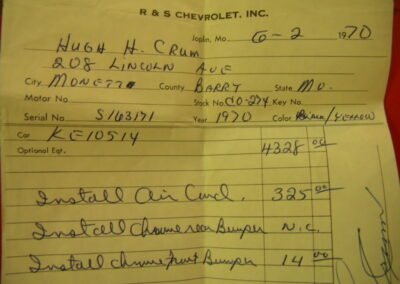 R & S CHEVROLET, INC.
Joplin, Mo. 6-2 1970
HUGH H. CRUM
208 LINCOLN AVE
City MONETT County BARRY State MO.
Motor No. Stock No. CO-274 Key No.
Serial No. S163171 Year 1970 Color Black/YELLOW
Car KE10514
Optional Eqt. 4328 00
Install Air Cond. 325 00
Install Chrome rear Bumper N.C.
Install chrome front Bumper 14 00
Crum